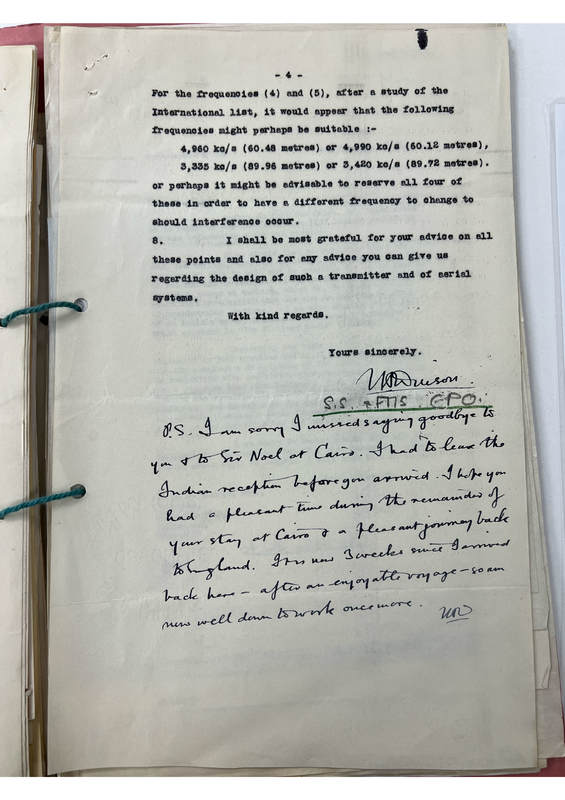 - 4 -
For the frequencies (4) and (5), after a study of the
International list, it would appear that the following
frequencies might perhaps be suitable :-
4,960 kc/s (60.48 metres) or 4,990 kc/s (60.12 metres),
3,335 kc/s (89.96 metres) or 3,420 kc/s (89.72 metres).
or perhaps it might be advisable to reserve all four of
these in order to have a different frequency to change to
should interference occur.
8. I shall be most grateful for your advice on all
these points and also for any advice you can give us
regarding the design of such a transmitter and of aerial
systems.
With kind regards.
Yours sincerely.
S.S. FTIS GPO.
P.S. I am sorry I missed saying goodbye to
you & to Sir Noel at Cairo. I had to leave the
Indian reception before you arrived. I hope you
had a pleasant time during the remainder of
your stay at Cairo & a pleasant journey back
to England. It is now 3 weeks since I arrived
back here - after an enjoyable voyage - so am
now well down to work once more.